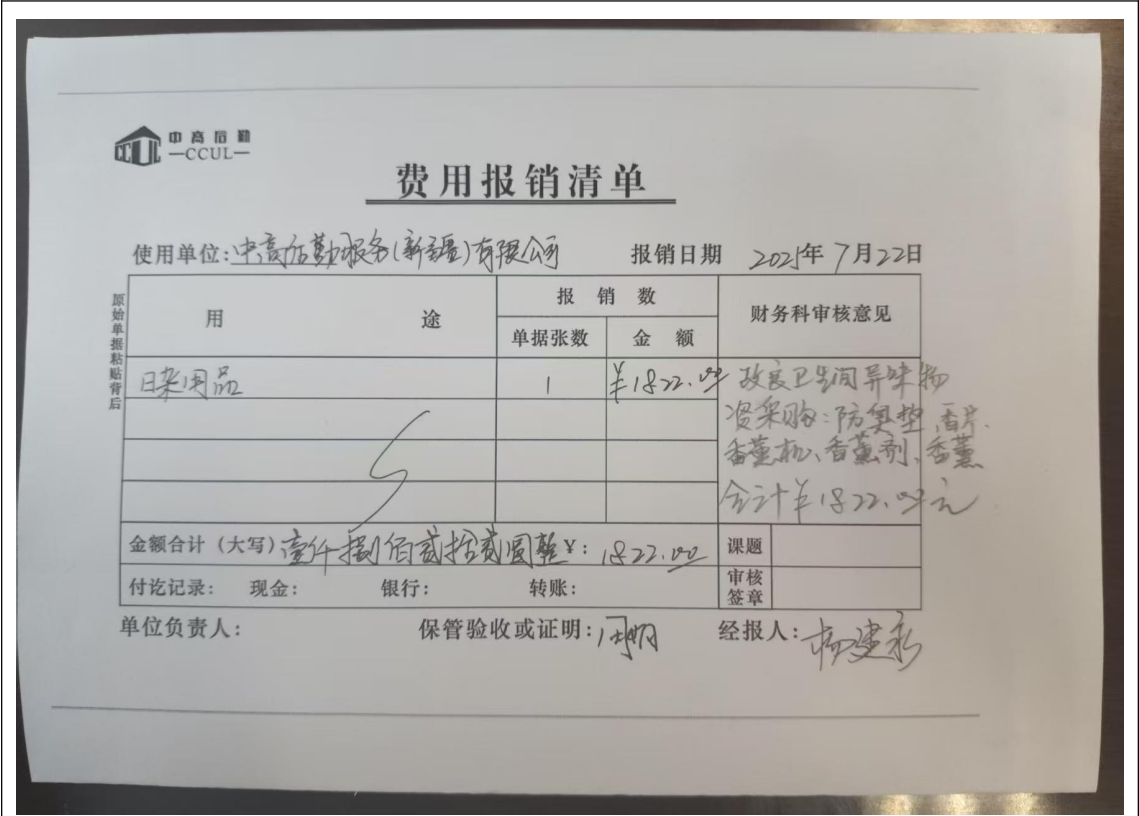 中高后勤
CCUL
—CCUL—
费用报销清单
使用单位:中高后勤服务(新疆)有限公司 报销日期 2025年7月22日
原始单据粘贴背后
用 途
报 销 数
单据张数 金 额
财务科审核意见
日杂用品 1 ¥1822.00
改良卫生间异味物
资采购:防臭垫,香片、
香薰机、香薰剂、香薰
合计¥1822.00元
金额合计(大写)壹仟捌佰贰拾贰圆整¥:1822.00
课题
付讫记录: 现金: 银行: 转账:
审核
签章
单位负责人: 保管验收或证明: 经报人:杨建永